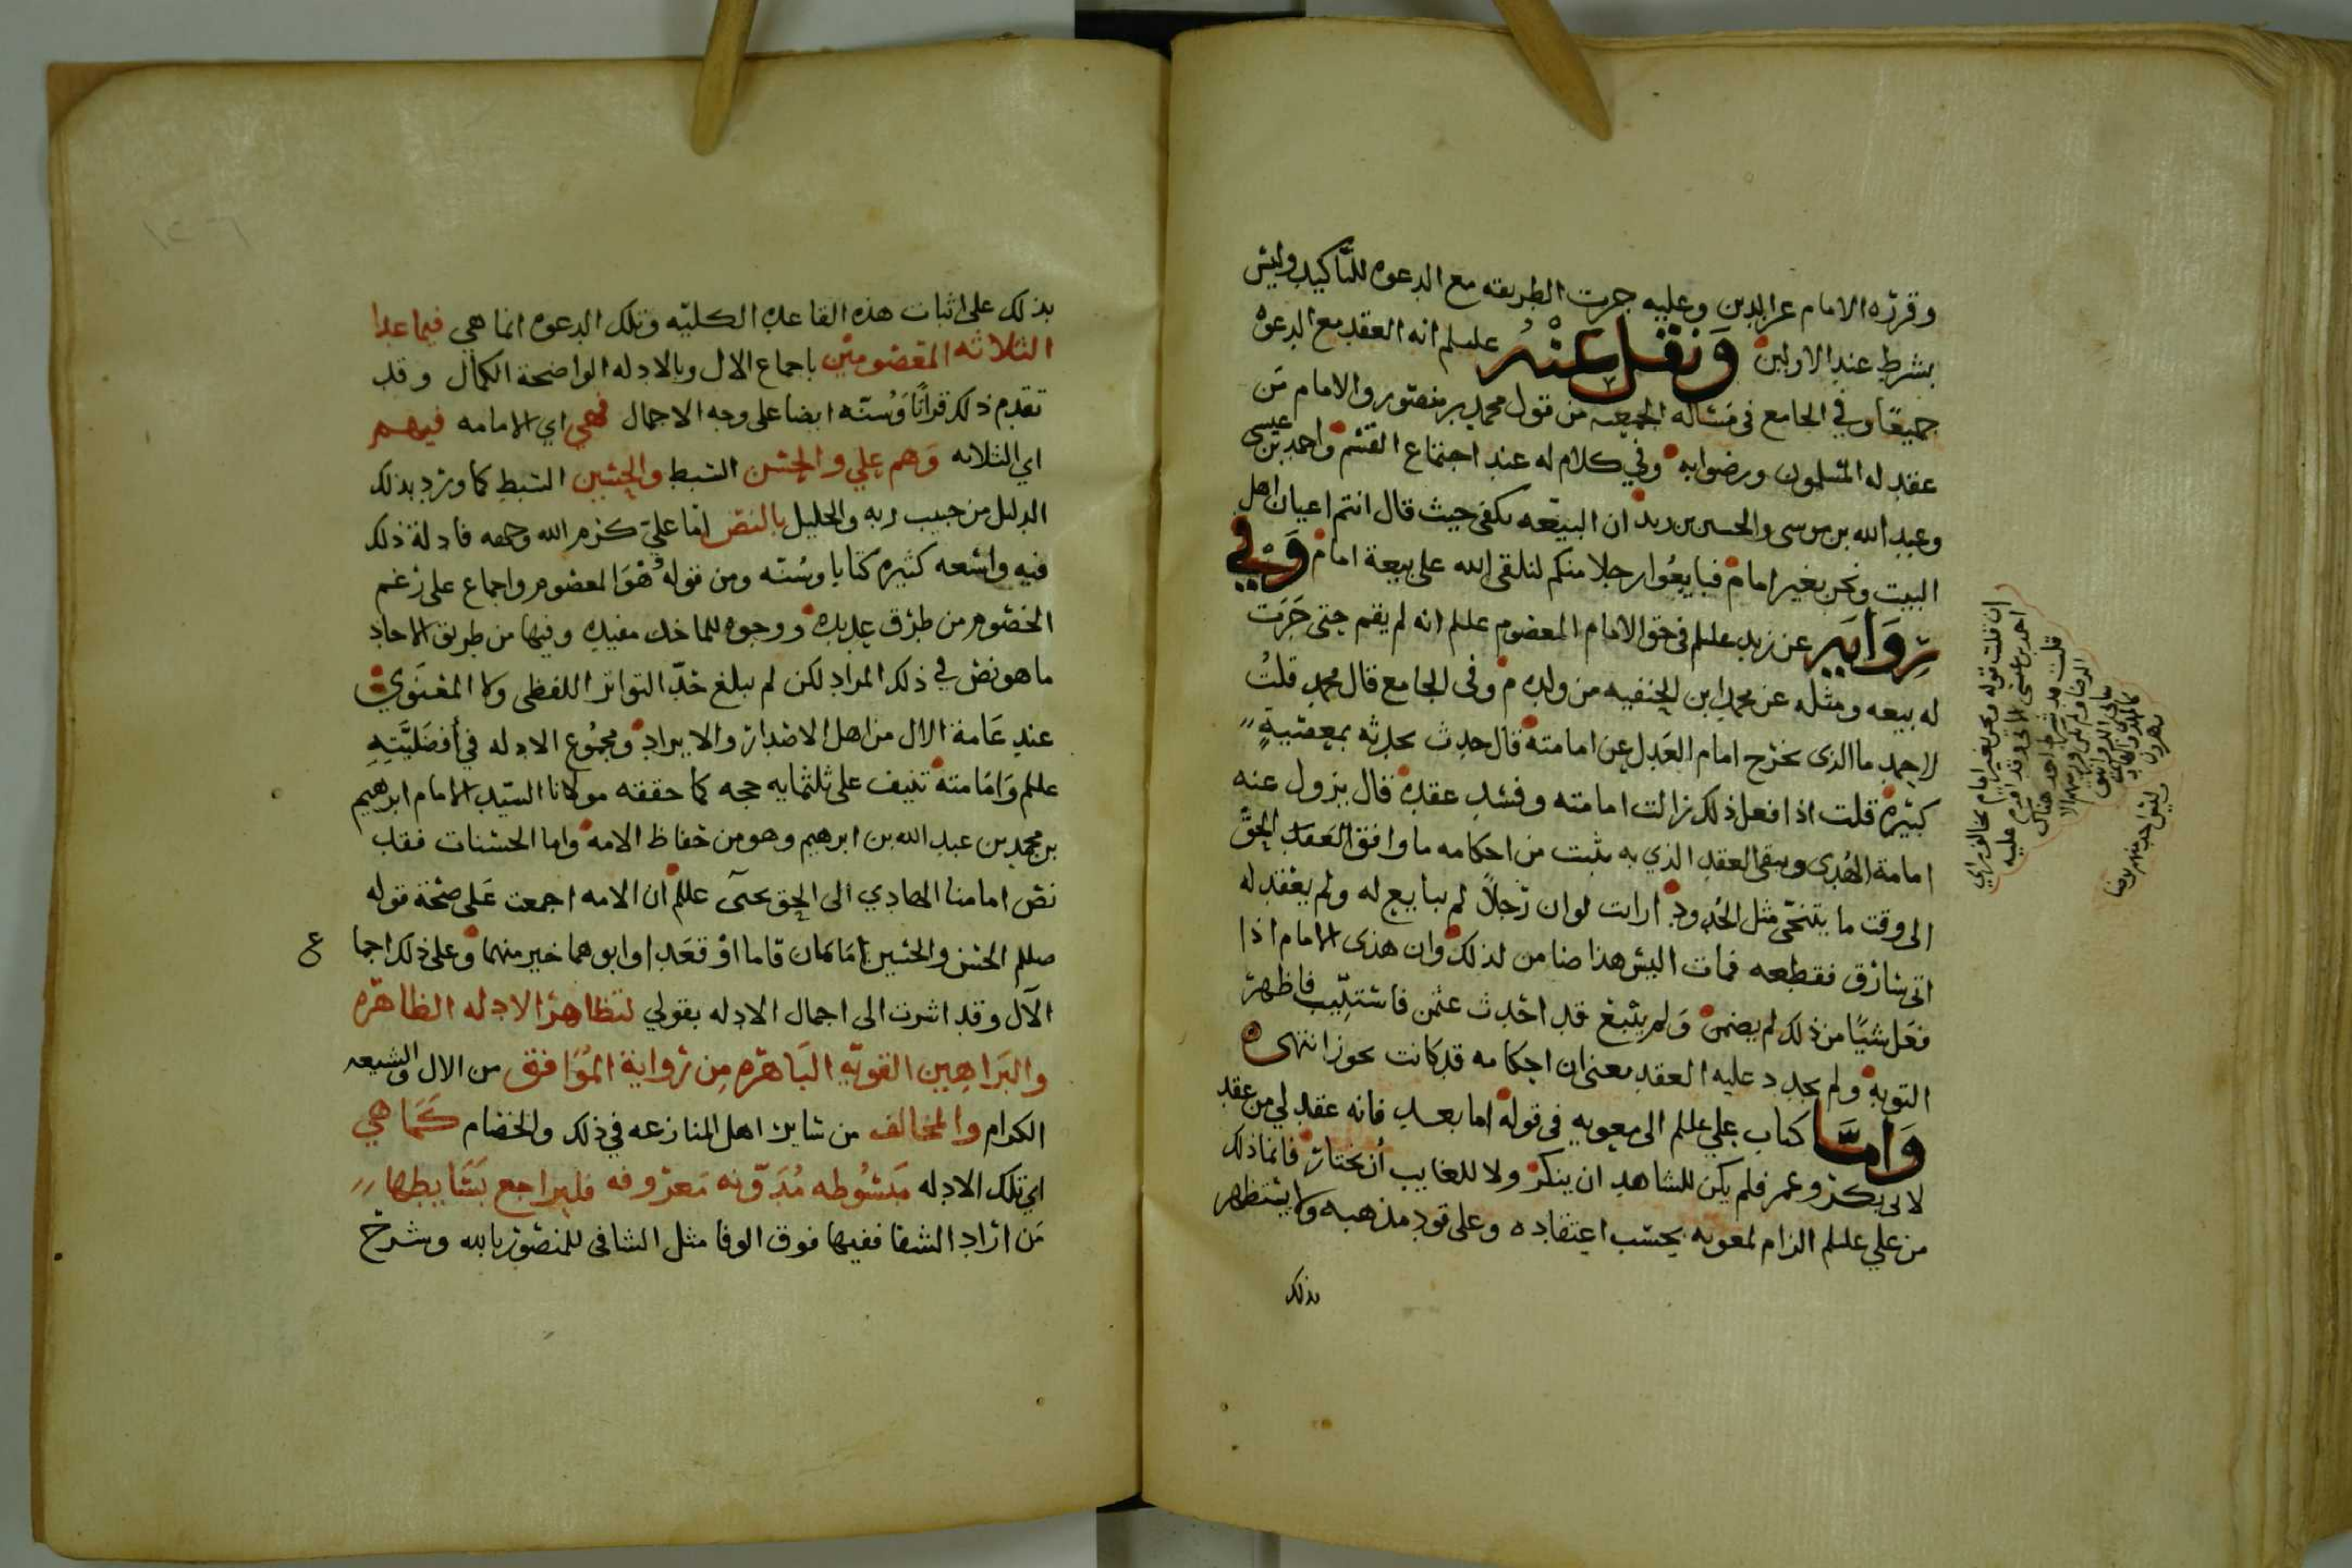 وقرره الامام عز الدين وعليه جرت الطريقه مع الدعوه للتاكيد وليس
بشرط عند الاولين ونقل عنه عليلم انه العقد مع الدعوة
جميعًا وفي الجامع فى مسئاله الجمعه من قول محمد بن منصور والامام من
عقد له المسلمون ورضوا به وفي كلام له عند اجتماع القسم واحمد بن عيسى
وعبد الله بن موسى والحسن بن زيد ان البيعه تكفى حيث قال انتم اعيان اهل
البيت ونحن بغير امام فبايعوا رجلا منكم لنلقى الله على بيعة امام وفي
رواية عن زيد عليلم فى حق الامام المعصوم عليلم انه لم يقم حتى جرت
له بيعه ومثله عن محمد ابن الحنفيه من ولده م وفى الجامع قال محمد قلتُ
لاحمد ما الذى يخرج امام العدل عن امامته قال حدث يحدثه بمعصيةٍ
كبيره قلت اذا فعل ذلك زالت امامته وفسد عقده قال يزول عنه
امامة الهُدى ويبقى العقد الذي به يثبت من احكامه ما وافق العقد الحق
الى وقت ما يتنحى مثل الحُدود ارايت لو ان رجلاً لم يبايع له ولم يعقد له
اتى سارق فقطعه فمات اليس هذا ضامن لذلك وان هذى الامام اذا
فعل شيًا من ذلك لم يضمن ولم يتبع قد احدث عثمن فاستتيب فاظهر
التوبه ولم يجدد عليه العقد معنى ان احكامه قد كانت تجوز انتهى
واما كتاب علي عليلم الى معويه فى قوله اما بعد فانه عقد لي من عقد
لابى بكر وعمر فلم يكن للشاهد ان ينكر ولا للغايب أن يختار فانما ذلك
من علي عليلم الزام لمعويه بحسب اعتقاده وعلى قود مذهبه ولا يستظهر
بذلك
ان قلت قوله ونحن بغير امام يخالف راي
احمد بن عيسى وقد
قلت قد شرط احمد هناك
الرضا ولم يكن
وليس احد منهم رضا
بذلك على اثبات هذه القاعده الكليّه وتلك الدعوه انما هي فيما عدا
الثلاثه المعصومين باجماع الال وبالادله الواضحة الكمال وقد
تقدم ذلك قرانًا وسنّه ايضا على وجه الاجمال فهي اي الامامه فيهم
اي الثلاثه وهم علي والحسن السبط والحسين السبط كما ورد بذلك
الدليل من حبيب ربه والخليل بالنص اما عليّ كرم الله وجهه فادلة ذلك
فيه واسعه كثيره كتابا وسنّه ومن قوله هو المعصوم واجماع على زغم
الخصوم من طرق عديده ووجوه للماخذ مفيده وفيها من طريق الاحاد
ما هو نص في ذلك المراد لكن لم يبلغ حدّ التواتر اللفظى ولا المعنوي
عند عامة الال من اهل الاصدار والايراد ومجموع الادله في أفضليّتهِ
عليلم وامامته تنيف على ثلثمايه حجه كما حققه مولانا السيّد الامام ابرهيم
بن محمد بن عبد الله بن ابرهيم وهو من حفاظ الامه واما الحسنان فقد
نص امامنا الهادي الى الحق يحيى عللم ان الامه اجمعت على صحة قوله
صللم الحسن والحسين امامان قاما او قعدا وابوهما خير منهما وعلى ذلك اجما
ع
الآل وقد اشرت الى اجمال الادله بقولي لتظاهر الادله الظاهره
والبراهين القويّه الباهره من رواية الموافق من الال والشيعه
الكرام والمخالف من ساير اهل المنازعه في ذلك والخصام كما هي
اي تلك الادله مبسوطه مدوّنه معروفه فليراجع بسايطها
من اراد الشفا ففيها فوق الوفا مثل الشافى للمنصور بالله وشرح